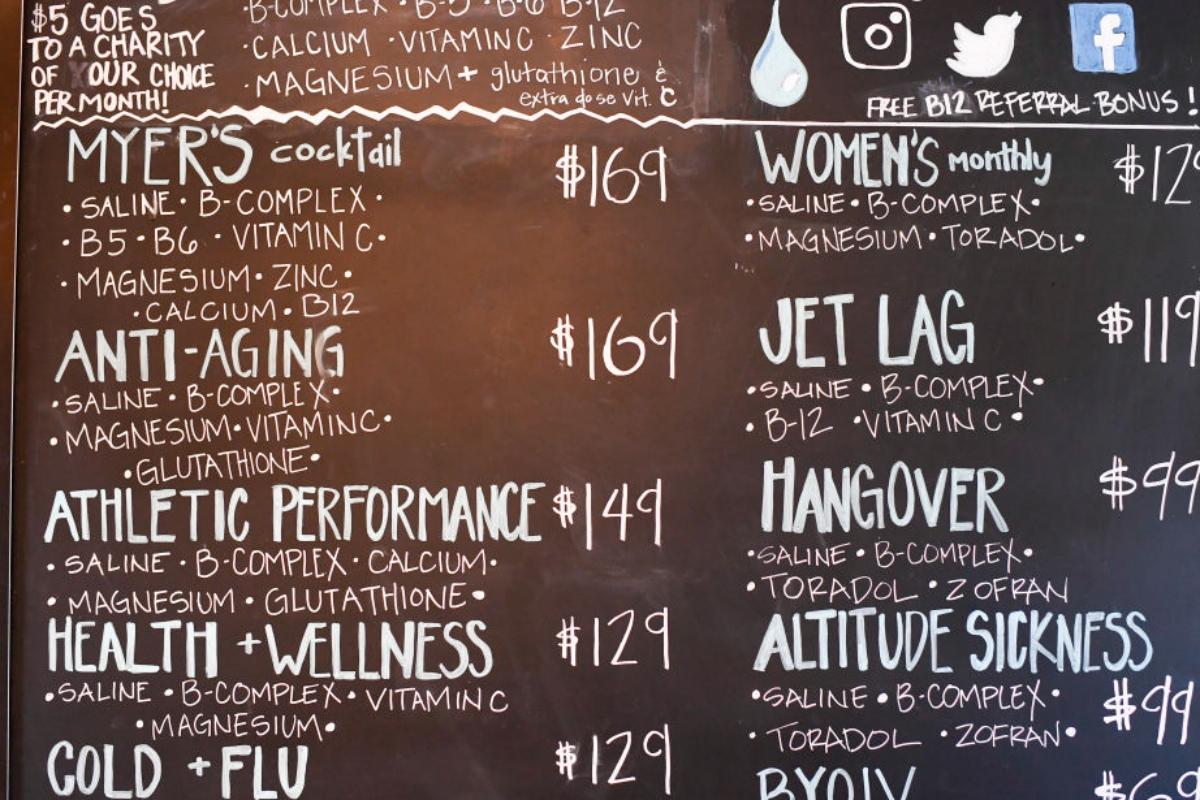 $5 GOES
TO A CHARITY
OF YOUR CHOICE
PER MONTH!
·B-COMPLEX · B-5 · B-6 B-12
·CALCIUM ·VITAMIN C · ZINC
·MAGNESIUM + glutathione &
extra dose vit. C
FREE B12 REFERRAL BONUS!
MYER'S cocktail $169
• SALINE • B-COMPLEX •
• B5 • B6 • VITAMIN C •
• MAGNESIUM • ZINC •
• CALCIUM • B12
ANTI-AGING $169
• SALINE • B-COMPLEX •
• MAGNESIUM • VITAMIN C •
• GLUTATHIONE •
ATHLETIC PERFORMANCE $149
• SALINE • B-COMPLEX • CALCIUM •
• MAGNESIUM • GLUTATHIONE •
HEALTH + WELLNESS $129
• SALINE • B-COMPLEX • VITAMIN C
• MAGNESIUM •
COLD + FLU $129
WOMEN'S monthly $129
• SALINE • B-COMPLEX •
• MAGNESIUM • TORADOL •
JET LAG $119
• SALINE • B-COMPLEX •
• B-12 • VITAMIN C •
HANGOVER $99
• SALINE • B-COMPLEX •
• TORADOL • ZOFRAN
ALTITUDE SICKNESS
$99
• SALINE • B-COMPLEX •
• TORADOL • ZOFRAN •
BYOIV $69